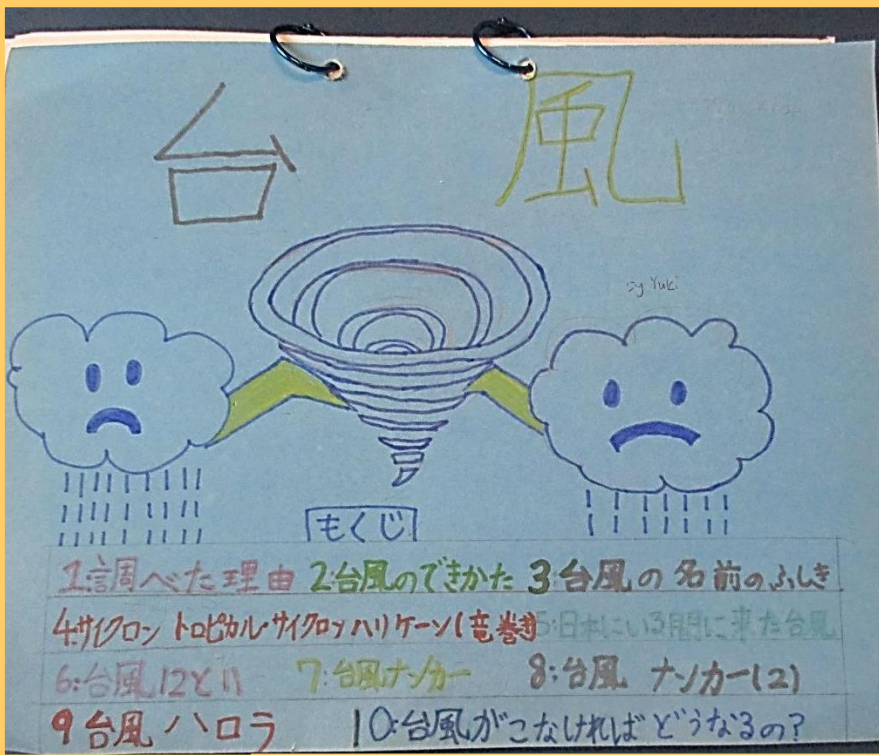 台風
by Yuki
もくじ
1:調べた理由 2:台風のできかた 3:台風の名前のふしき
4:サイクロン トロピカル・サイクロン ハリケーン(竜巻) 5:日本にいる間に来た台風
6:台風12とり 7:台風ナンカー 8:台風 ナンカー(2)
9 台風 ハロラ 10:台風がこなければどうなるの?